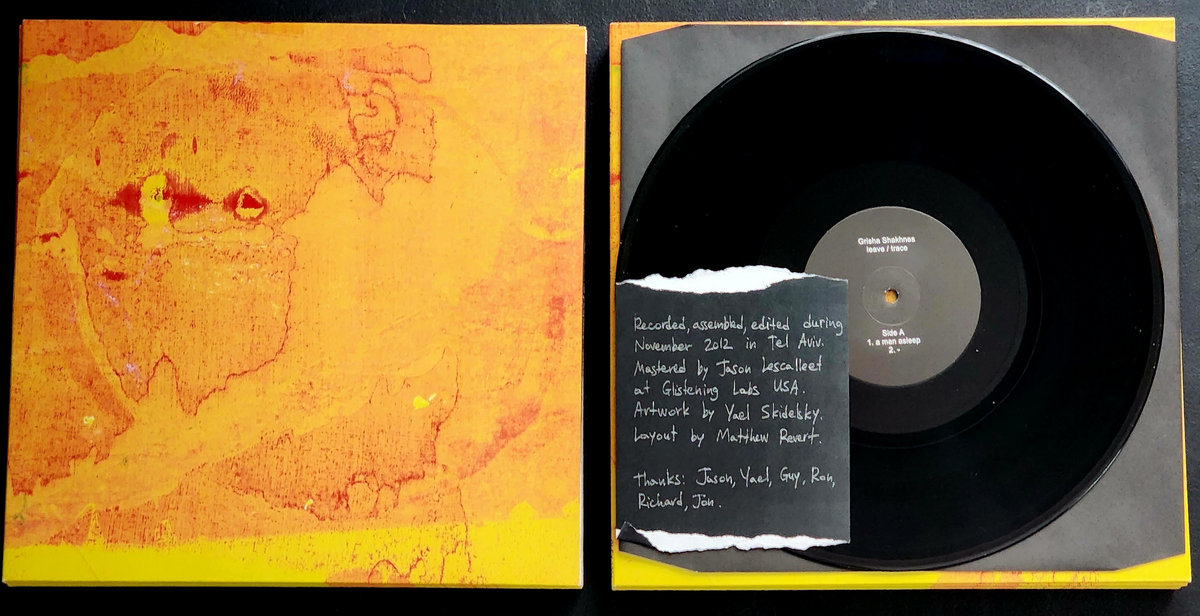 Grisha Shakhnes
leave / trace
Side A
1. a man asleep
2. -
Recorded, assembled, edited during
November 2012 in Tel Aviv.
Mastered by Jason Lescalleet
at Glistening Labs USA.
Artwork by Yael Skidelsky.
Layout by Matthew Revert.
Thanks: Jason, Yael, Guy, Ron,
Richard, Jon.